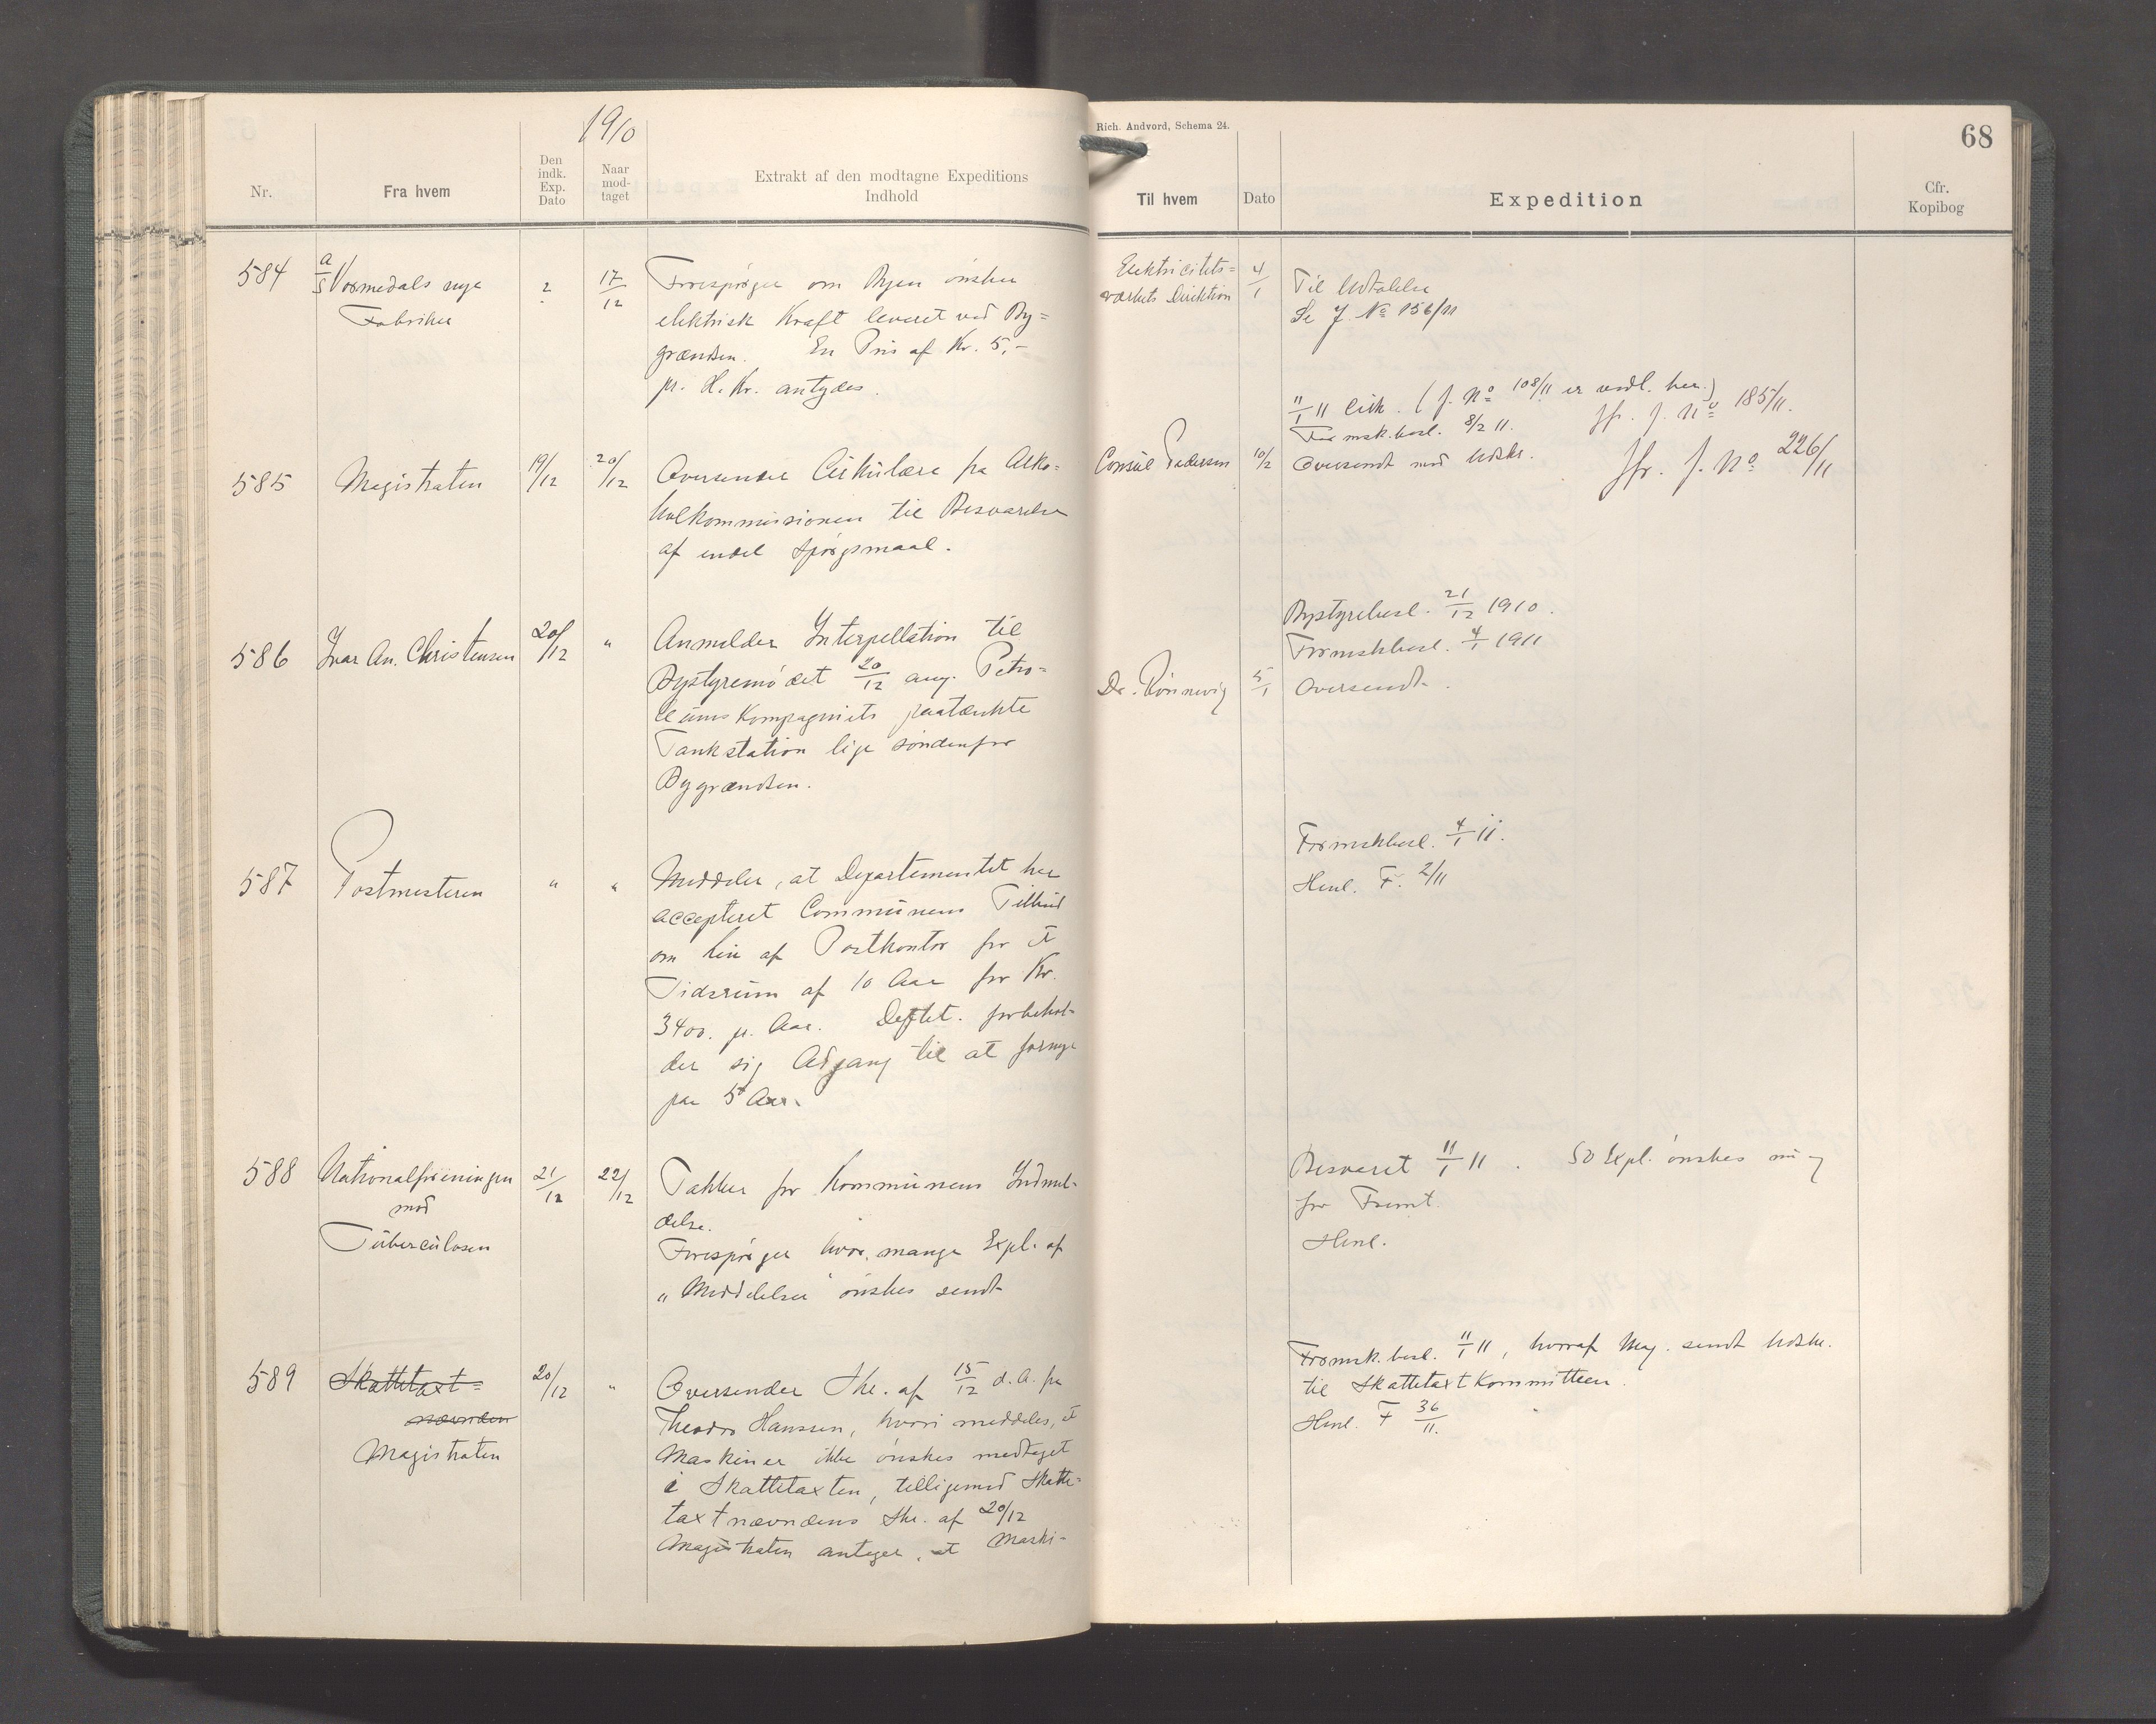 1910
Nr.
Fra hvem
Den
indk.
Exp.
Dato
Naar
mod-
taget
Extrakt af den modtagne Expeditions
Indhold
584
A/S Vormedals nye
Fabriker
?
17/12
Forespørger om Byen ønsker
elektrisk Kraft leveret ved By=
grændsen. En Pris af Kr. 5,-
pr. H. Kr. antydes.
585
Magistraten
19/12
20/12
Oversender Cirkulære fra Alko=
holkommissionen til Besvarelse
af endel Spørgsmaal.
586
Ivar An. Christensen
20/12
"
Anmelder Interpellation til
Bystyremødet 20/12 ang. Petro=
leumskompagniets paatænkte
Tankstation lige søndenfor
Bygrændsen.
587
Postmesteren
"
"
Meddeler, at Departementet har
accepteret Communens Tilbud
om Leie af Postkontor for et
Tidsrum af 10 Aar for Kr.
3400. pr. Aar. Deptet. forbehol-
der sig Adgang til at fornye
paa 5 Aar.
588
Nationalforeningen
mod
Tuberculosen
21/12
22/12
Takker for Kommunens Indmel-
delse.
Forespørger hvor mange Expl. af
"Meddelelser" ønskes sendt
589
Skattetaxt=
nævnden
Magistraten
20/12
"
Oversender Skr. af 15/12 d.A. fra
Theodor Hanssen, hvori meddeles, at
Maskiner ikke ønskes medtaget
i Skattetaxten, telligemed Skatte=
taxtnævndens Skr. af 20/12
Magistraten antager, at Maski-
Rich. Andvord, Schema 24.
68
Til hvem
Dato
Expedition
Cfr.
Kopibog
Elektricitets=
værkets Direktion
4/1
Til Udtalelse
Se J. No 156/11
11/1 11 Cirk. (J. No 108/11 er vedl. her.)
Formsk.besl. 8/2 11. Jfr. J. No 185/11.
Consul Pedersen
10/2
Oversendt med Udskr. Jfr. J. No. 226/11
Bystyrebesl. 21/12 1910.
Formskbesl. 4/1 1911
Dr. Rønnevig
5/1
Oversendt.
Formskbesl. 4/1 11.
Henl. F. 2/11
Besvaret 11/1 11. 50 Expl. ønskes nu og
for Fremt.
Henl.
Formsk.besl. 11/1 11, hvoraf Mag. sendt Udskr.
til Skattetaxtkommitteen.
Henl. F 36/11.